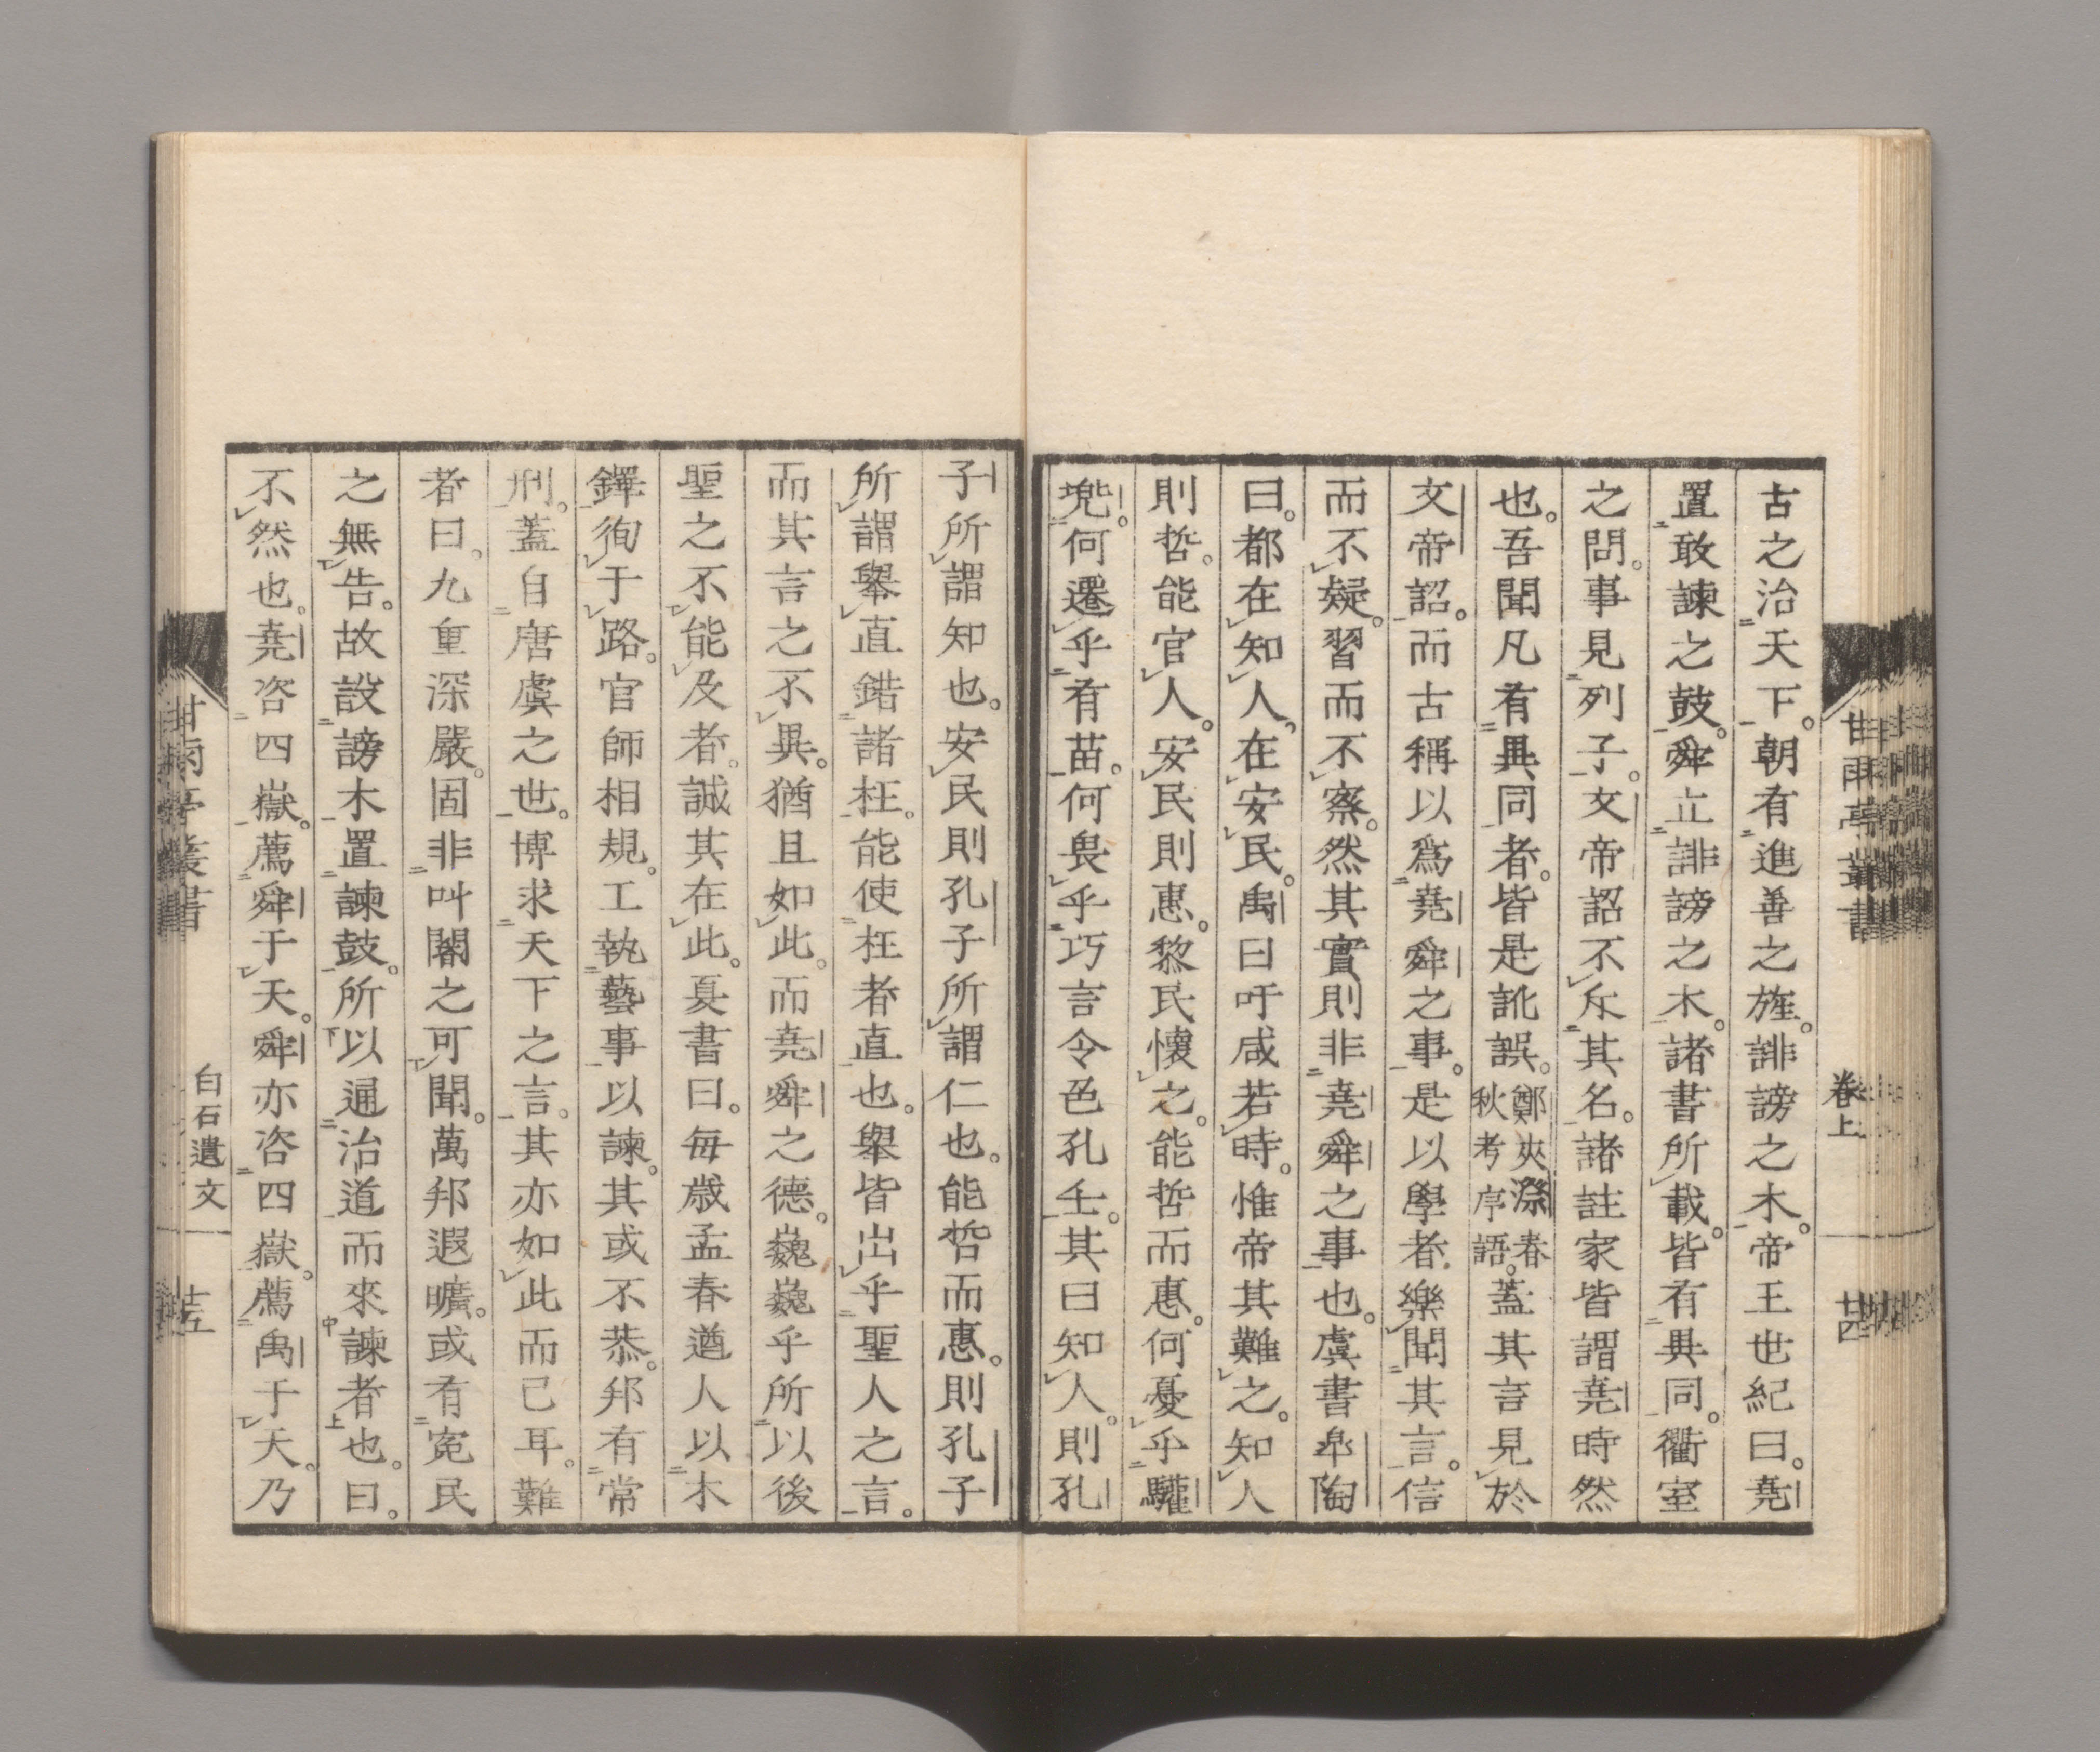 甘雨亭叢書
卷上
廿四
古之治天下。朝有進善之旌。誹謗之木。帝王世紀曰。堯
置敢諫之鼓。舜立誹謗之木。諸書所載。皆有異同。衢室
之問。事見列子。文帝詔不斥其名。諸註家皆謂堯時然
也。吾聞凡有異同者。皆是訛誤。鄭夾漈春秋考序語。蓋其言見於
文帝詔。而古稱以爲堯舜之事。是以學者樂聞其言。信
而不疑。習而不察。然其實則非堯舜之事也。虞書皐陶
曰。都在知人。在安民。禹曰吁咸若時。惟帝其難之。知人
則哲。能官人。安民則惠。黎民懷之。能哲而惠。何憂乎驩
兜。何遷乎有苗。何畏乎巧言令色孔壬。其曰知人。則孔
子所謂知也。安民則孔子所謂仁也。能哲而惠。則孔子
所謂舉直錯諸枉。能使枉者直也。舉皆出乎聖人之言。
而其言之不異。猶且如此。而堯舜之德。巍巍乎所以後
聖之不能及者。誠其在此。夏書曰。每歲孟春遒人以木
鐸徇于路。官師相規。工執藝事以諫。其或不恭。邦有常
刑。蓋自唐虞之世。博求天下之言。其亦如此而已耳。難
者曰。九重深嚴。固非叫閽之可聞。萬邦遐曠。或有冤民
之無告。故設謗木置諫鼓。所以通治道而來諫者也。曰。
不然也。堯咨四嶽。薦舜于天。舜亦咨四嶽。薦禹于天。乃
甘雨亭叢書
白石遺文
廿五